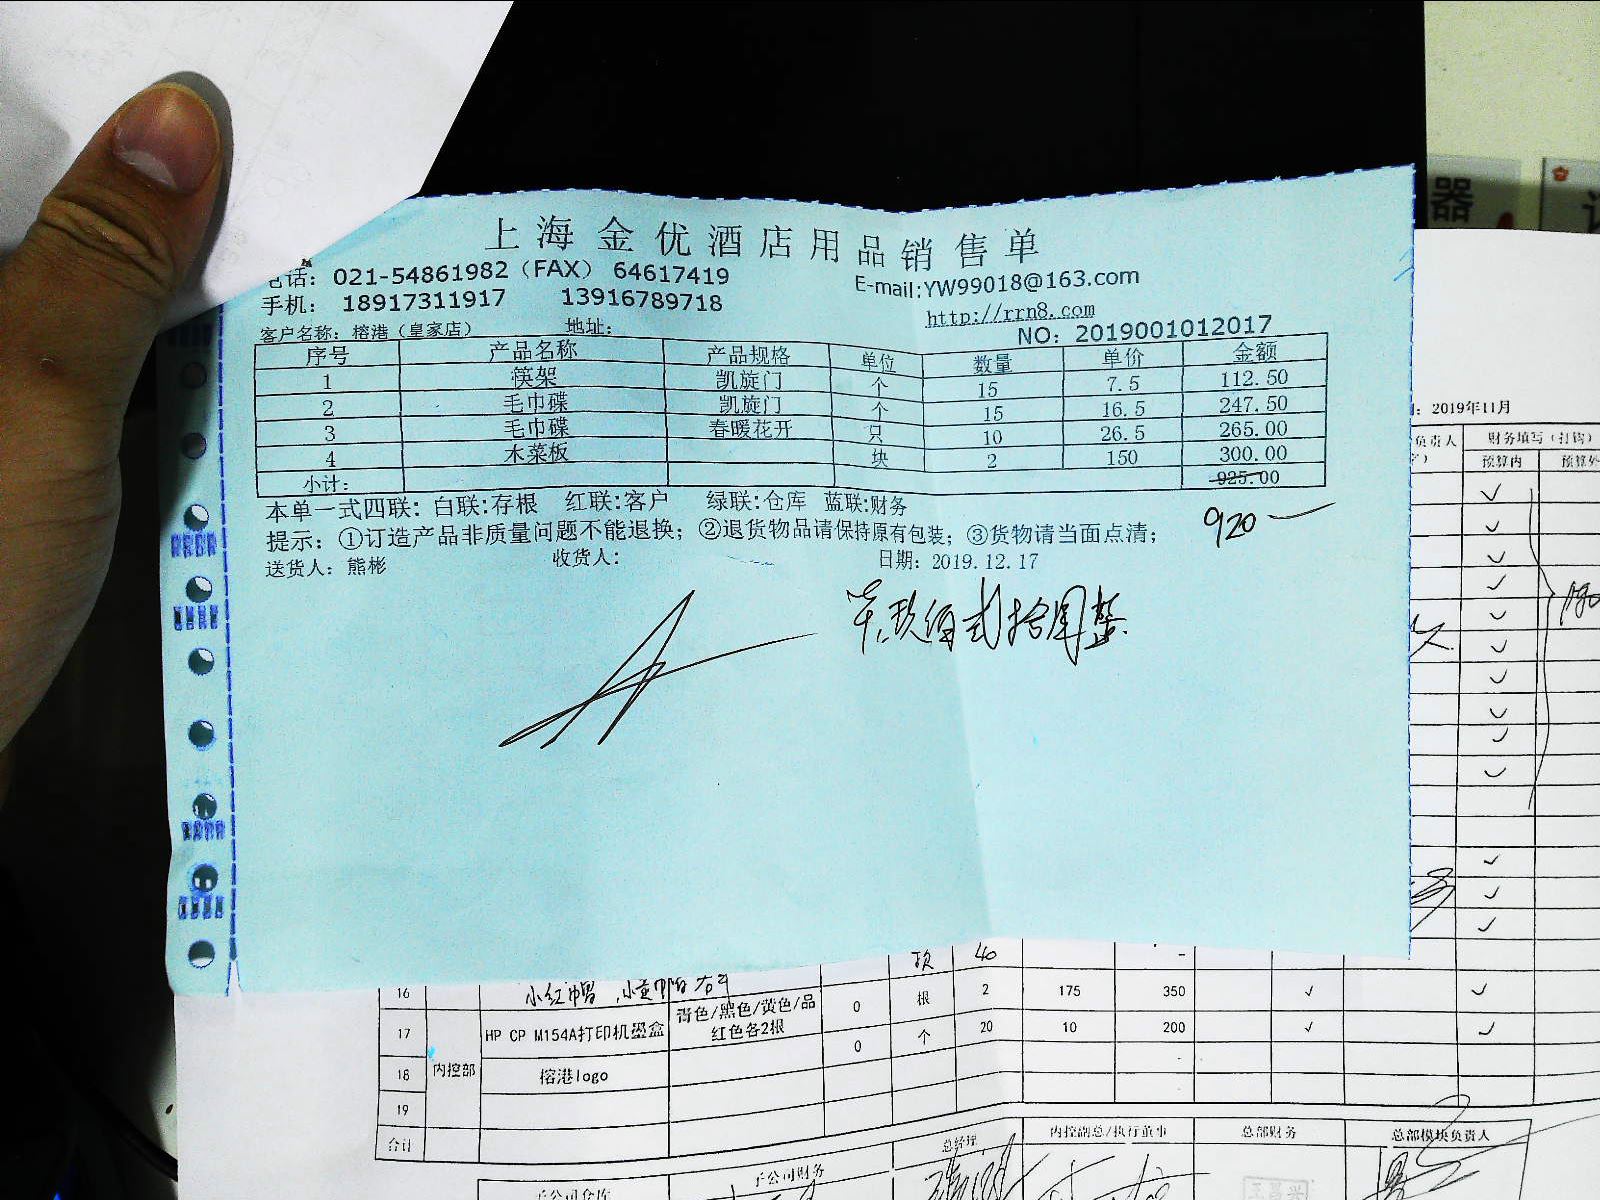 上海金优酒店用品销售单
电话：021-54861982（FAX） 64617419
E-mail:YW99018@163.com
手机： 18917311917 13916789718
http://rrn8.com
客户名称：榕港（皇家店） 地址：
NO：2019001012017
序号 产品名称 产品规格 单位 数量 单价 金额
1 筷架 凯旋门 个 15 7.5 112.50
2 毛巾碟 凯旋门 个 15 16.5 247.50
3 毛巾碟 春暖花开 只 10 26.5 265.00
4 木菜板 块 2 150 300.00
小计： 925.00
本单一式四联：白联：存根 红联：客户 绿联：仓库 蓝联：财务
920
提示：①订造产品非质量问题不能退换；②退货物品请保持原有包装；③货物请当面点清；
送货人：熊彬 收货人： 日期：2019.12.17
玖佰贰拾圆整
器
2019年11月
负责人 财务填写（打钩）
预算内 预算外
项 40
16 根 2 175 350 ✓ ✓
17 HP CP M154A打印机墨盒 青色/黑色/黄色/品红色各2根 0 个 20 10 200 ✓ ✓
18 内控部 榕港logo 0
19
合计
总经理 内控副总/执行董事 总部财务 总部模块负责人
子公司仓库 子公司财务